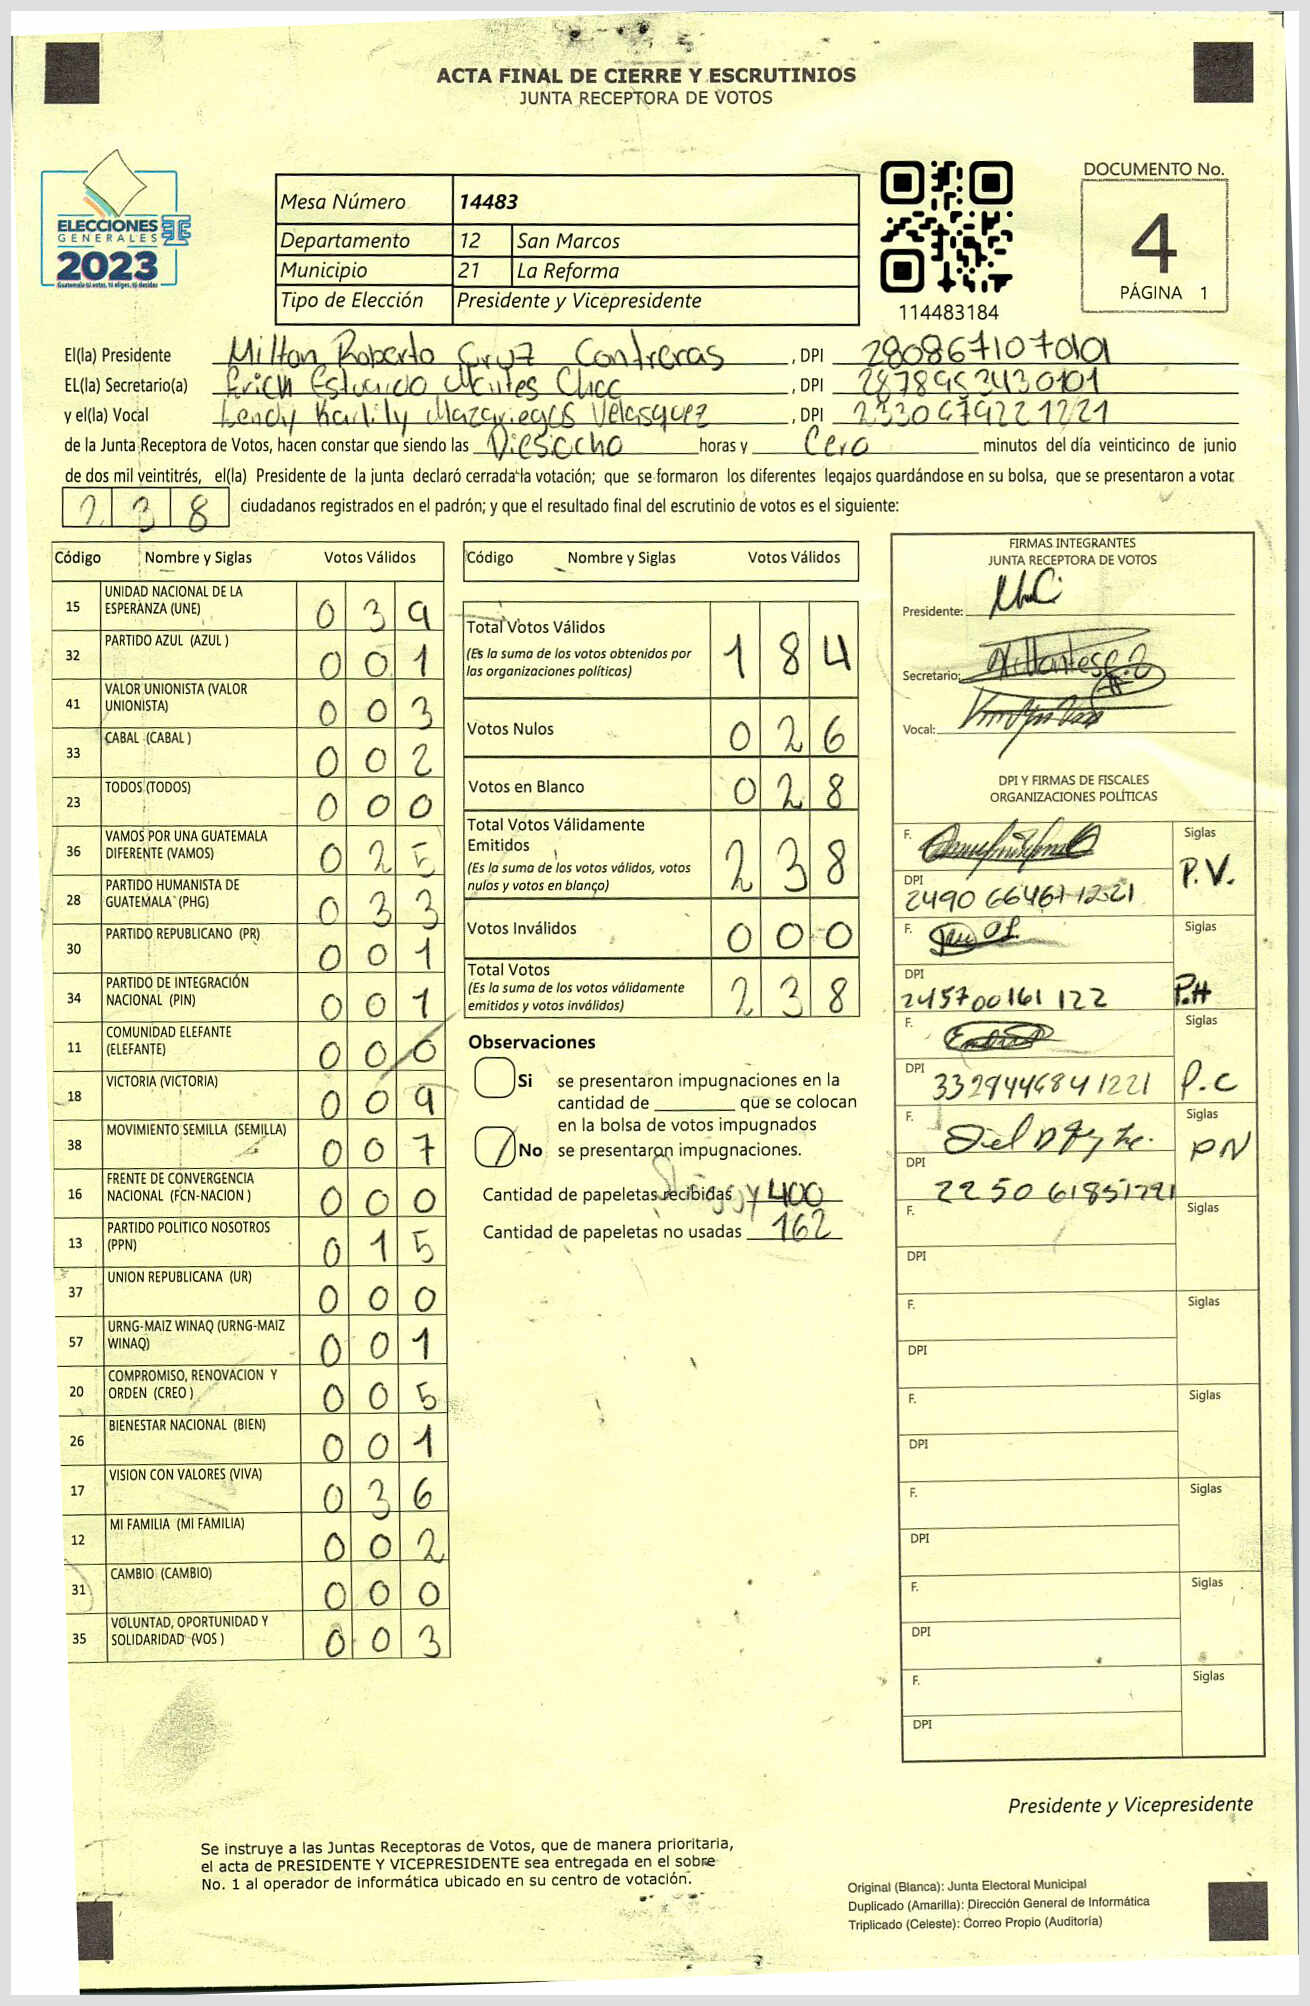 ACTA FINAL DE CIERRE Y ESCRUTINIOS
JUNTA RECEPTORA DE VOTOS
ELECCIONES
GENERALES
2023
Guatemala tú votas, tú eliges, tú decides
Mesa Número 14483
Departamento 12 San Marcos
Municipio 21 La Reforma
Tipo de Elección Presidente y Vicepresidente
114483184
DOCUMENTO No.
4
PÁGINA 1
El(la) Presidente Milton Roberto Cruz Contreras, DPI
EL(la) Secretario(a) Erich Estuardo, DPI 2878953430101
y el(la) Vocal Lendy Karlily Mazariegos Velasquez, DPI 2330679221221
de la Junta Receptora de Votos, hacen constar que siendo las Diesocho horas y Cero minutos del día veinticinco de junio
de dos mil veintitrés, el(la) Presidente de la junta declaró cerrada la votación; que se formaron los diferentes legajos guardándose en su bolsa, que se presentaron a votar
238 ciudadanos registrados en el padrón; y que el resultado final del escrutinio de votos es el siguiente:
Código Nombre y Siglas Votos Válidos
15 UNIDAD NACIONAL DE LA ESPERANZA (UNE) 039
32 PARTIDO AZUL (AZUL ) 001
41 VALOR UNIONISTA (VALOR UNIONISTA) 003
33 CABAL (CABAL ) 002
23 TODOS (TODOS) 000
36 VAMOS POR UNA GUATEMALA DIFERENTE (VAMOS) 025
28 PARTIDO HUMANISTA DE GUATEMALA (PHG) 033
30 PARTIDO REPUBLICANO (PR) 001
34 PARTIDO DE INTEGRACIÓN NACIONAL (PIN) 001
11 COMUNIDAD ELEFANTE (ELEFANTE) 000
18 VICTORIA (VICTORIA) 009
38 MOVIMIENTO SEMILLA (SEMILLA) 007
16 FRENTE DE CONVERGENCIA NACIONAL (FCN-NACION ) 000
13 PARTIDO POLITICO NOSOTROS (PPN) 015
37 UNION REPUBLICANA (UR) 000
57 URNG-MAIZ WINAQ (URNG-MAIZ WINAQ) 001
20 COMPROMISO, RENOVACION Y ORDEN (CREO ) 005
26 BIENESTAR NACIONAL (BIEN) 001
17 VISION CON VALORES (VIVA) 036
12 MI FAMILIA (MI FAMILIA) 002
31 CAMBIO (CAMBIO) 000
35 VOLUNTAD, OPORTUNIDAD Y SOLIDARIDAD (VOS ) 003
Código Nombre y Siglas Votos Válidos
Total Votos Válidos 184
(Es la suma de los votos obtenidos por
las organizaciones políticas)
Votos Nulos 026
Votos en Blanco 028
Total Votos Válidamente
Emitidos 238
(Es la suma de los votos válidos, votos
nulos y votos en blanco)
Votos Inválidos 000
Total Votos 238
(Es la suma de los votos válidamente
emitidos y votos inválidos)
Observaciones
Si se presentaron impugnaciones en la
cantidad de ________ que se colocan
en la bolsa de votos impugnados
No se presentaron impugnaciones.
Cantidad de papeletas recibidas 400
Cantidad de papeletas no usadas 162
FIRMAS INTEGRANTES
JUNTA RECEPTORA DE VOTOS
Presidente:
Secretario:
Vocal:
DPI Y FIRMAS DE FISCALES
ORGANIZACIONES POLÍTICAS
F. Siglas
P.V.
DPI
F. Siglas
DPI
245700161 122 P.H
F. Siglas
DPI 332944684 1221 P.C
F. Siglas
PN
DPI
2250 61851221
F. Siglas
DPI
F. Siglas
DPI
F. Siglas
DPI
F. Siglas
DPI
F. Siglas
DPI
F. Siglas
DPI
Presidente y Vicepresidente
Se instruye a las Juntas Receptoras de Votos, que de manera prioritaria,
el acta de PRESIDENTE Y VICEPRESIDENTE sea entregada en el sobre
No. 1 al operador de informática ubicado en su centro de votación.
Original (Blanca): Junta Electoral Municipal
Duplicado (Amarilla): Dirección General de Informática
Triplicado (Celeste): Correo Propio (Auditoría)